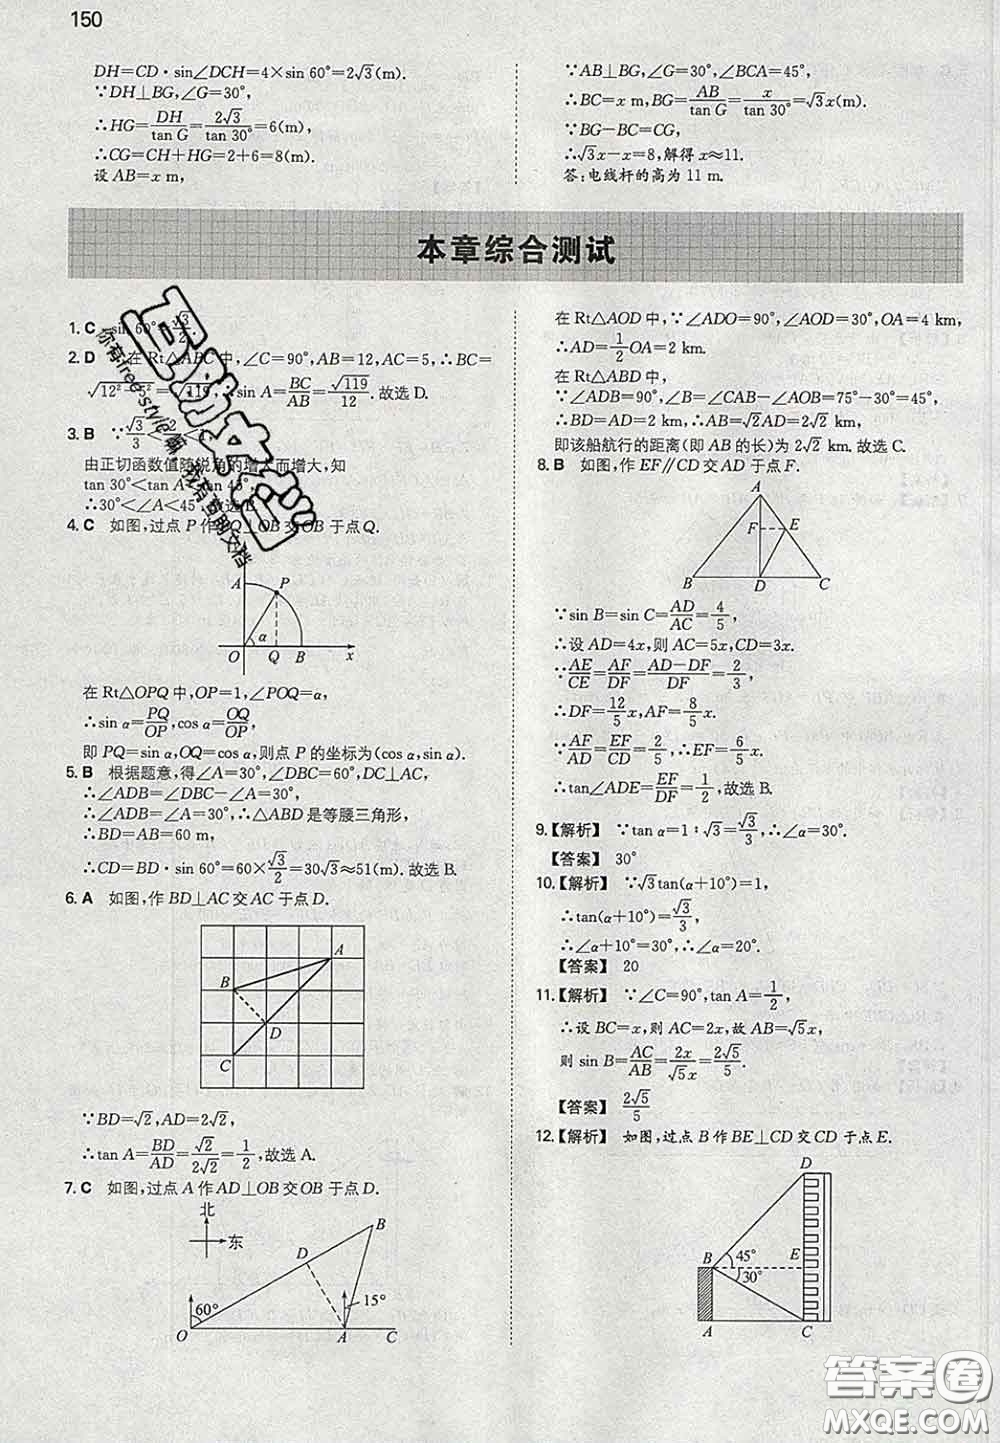 150
DH=CD·sin∠DCH=4×sin 60°=2√3(m).
∵DH⊥BG,∠G=30°,
∴HG=DH/tan G=2√3/tan 30°=6(m),
∴CG=CH+HG=2+6=8(m).
设 AB=x m,
∵AB⊥BG,∠G=30°,∠BCA=45°,
∴BC=x m,BG=AB/tan G=x/tan 30°=√3x(m).
∵BG-BC=CG,
∴√3x-x=8,解得 x≈11.
答:电线杆的高为 11 m.
本章综合测试
1. C sin 60°=√3/2.
2. D 在 Rt△ABC 中,∠C=90°,AB=12,AC=5,∴BC=
√12²-5²=√119,∴sin A=BC/AB=√119/12.故选 D.
3. B ∵√3/3<√2/2<1,
由正切函数值随锐角的增大而增大,知
tan 30°<tan A<tan 45°,
∴30°<∠A<45°,故选 B.
4. C 如图,过点 P 作 PQ⊥OB 交 OB 于点 Q.
A P
α
O Q B x
在 Rt△OPQ 中,OP=1,∠POQ=α,
∴sin α=PQ/OP,cos α=OQ/OP,
即 PQ=sin α,OQ=cos α,则点 P 的坐标为(cos α,sin α).
5. B 根据题意,得∠A=30°,∠DBC=60°,DC⊥AC,
∴∠ADB=∠DBC-∠A=30°,
∴∠ADB=∠A=30°,∴△ABD 是等腰三角形,
∴BD=AB=60 m,
∴CD=BD·sin 60°=60×√3/2=30√3≈51(m).故选 B.
6. A 如图,作 BD⊥AC 交 AC 于点 D.
A
B
D
C
∵BD=√2,AD=2√2,
∴tan A=BD/AD=√2/2√2=1/2,故选 A.
7. C 如图,过点 A 作 AD⊥OB 交 OB 于点 D.
北
东
B
D
60° 15°
O A C
在 Rt△AOD 中,∵∠ADO=90°,∠AOD=30°,OA=4 km,
∴AD=1/2OA=2 km.
在 Rt△ABD 中,
∵∠ADB=90°,∠B=∠CAB-∠AOB=75°-30°=45°,
∴BD=AD=2 km,∴AB=√2AD=2√2 km,
即该船航行的距离(即 AB 的长)为 2√2 km.故选 C.
8. B 如图,作 EF∥CD 交 AD 于点 F.
A
F E
B D C
∵sin B=sin C=AD/AC=4/5,
∴设 AD=4x,则 AC=5x,CD=3x.
∵AE/CE=AF/DF=AD-DF/DF=2/3,
∴DF=12/5x,AF=8/5x.
∵AF/AD=EF/CD=2/5,∴EF=6/5x.
∴tan∠ADE=EF/DF=1/2,故选 B.
9.【解析】 ∵tan α=1∶√3=√3/3,∴∠α=30°.
【答案】 30°
10.【解析】 ∵√3tan(α+10°)=1,
∴tan(α+10°)=√3/3,
∴∠α+10°=30°,∴∠α=20°.
【答案】 20
11.【解析】 ∵∠C=90°,tan A=1/2,
∴设 BC=x,则 AC=2x,故 AB=√5x,
则 sin B=AC/AB=2x/√5x=2√5/5.
【答案】 2√5/5
12.【解析】 如图,过点 B 作 BE⊥CD 交 CD 于点 E.
D
B 45° E
30°
A C
你有free-style嘛,我有当前文档
答案圈
MXQE.COM